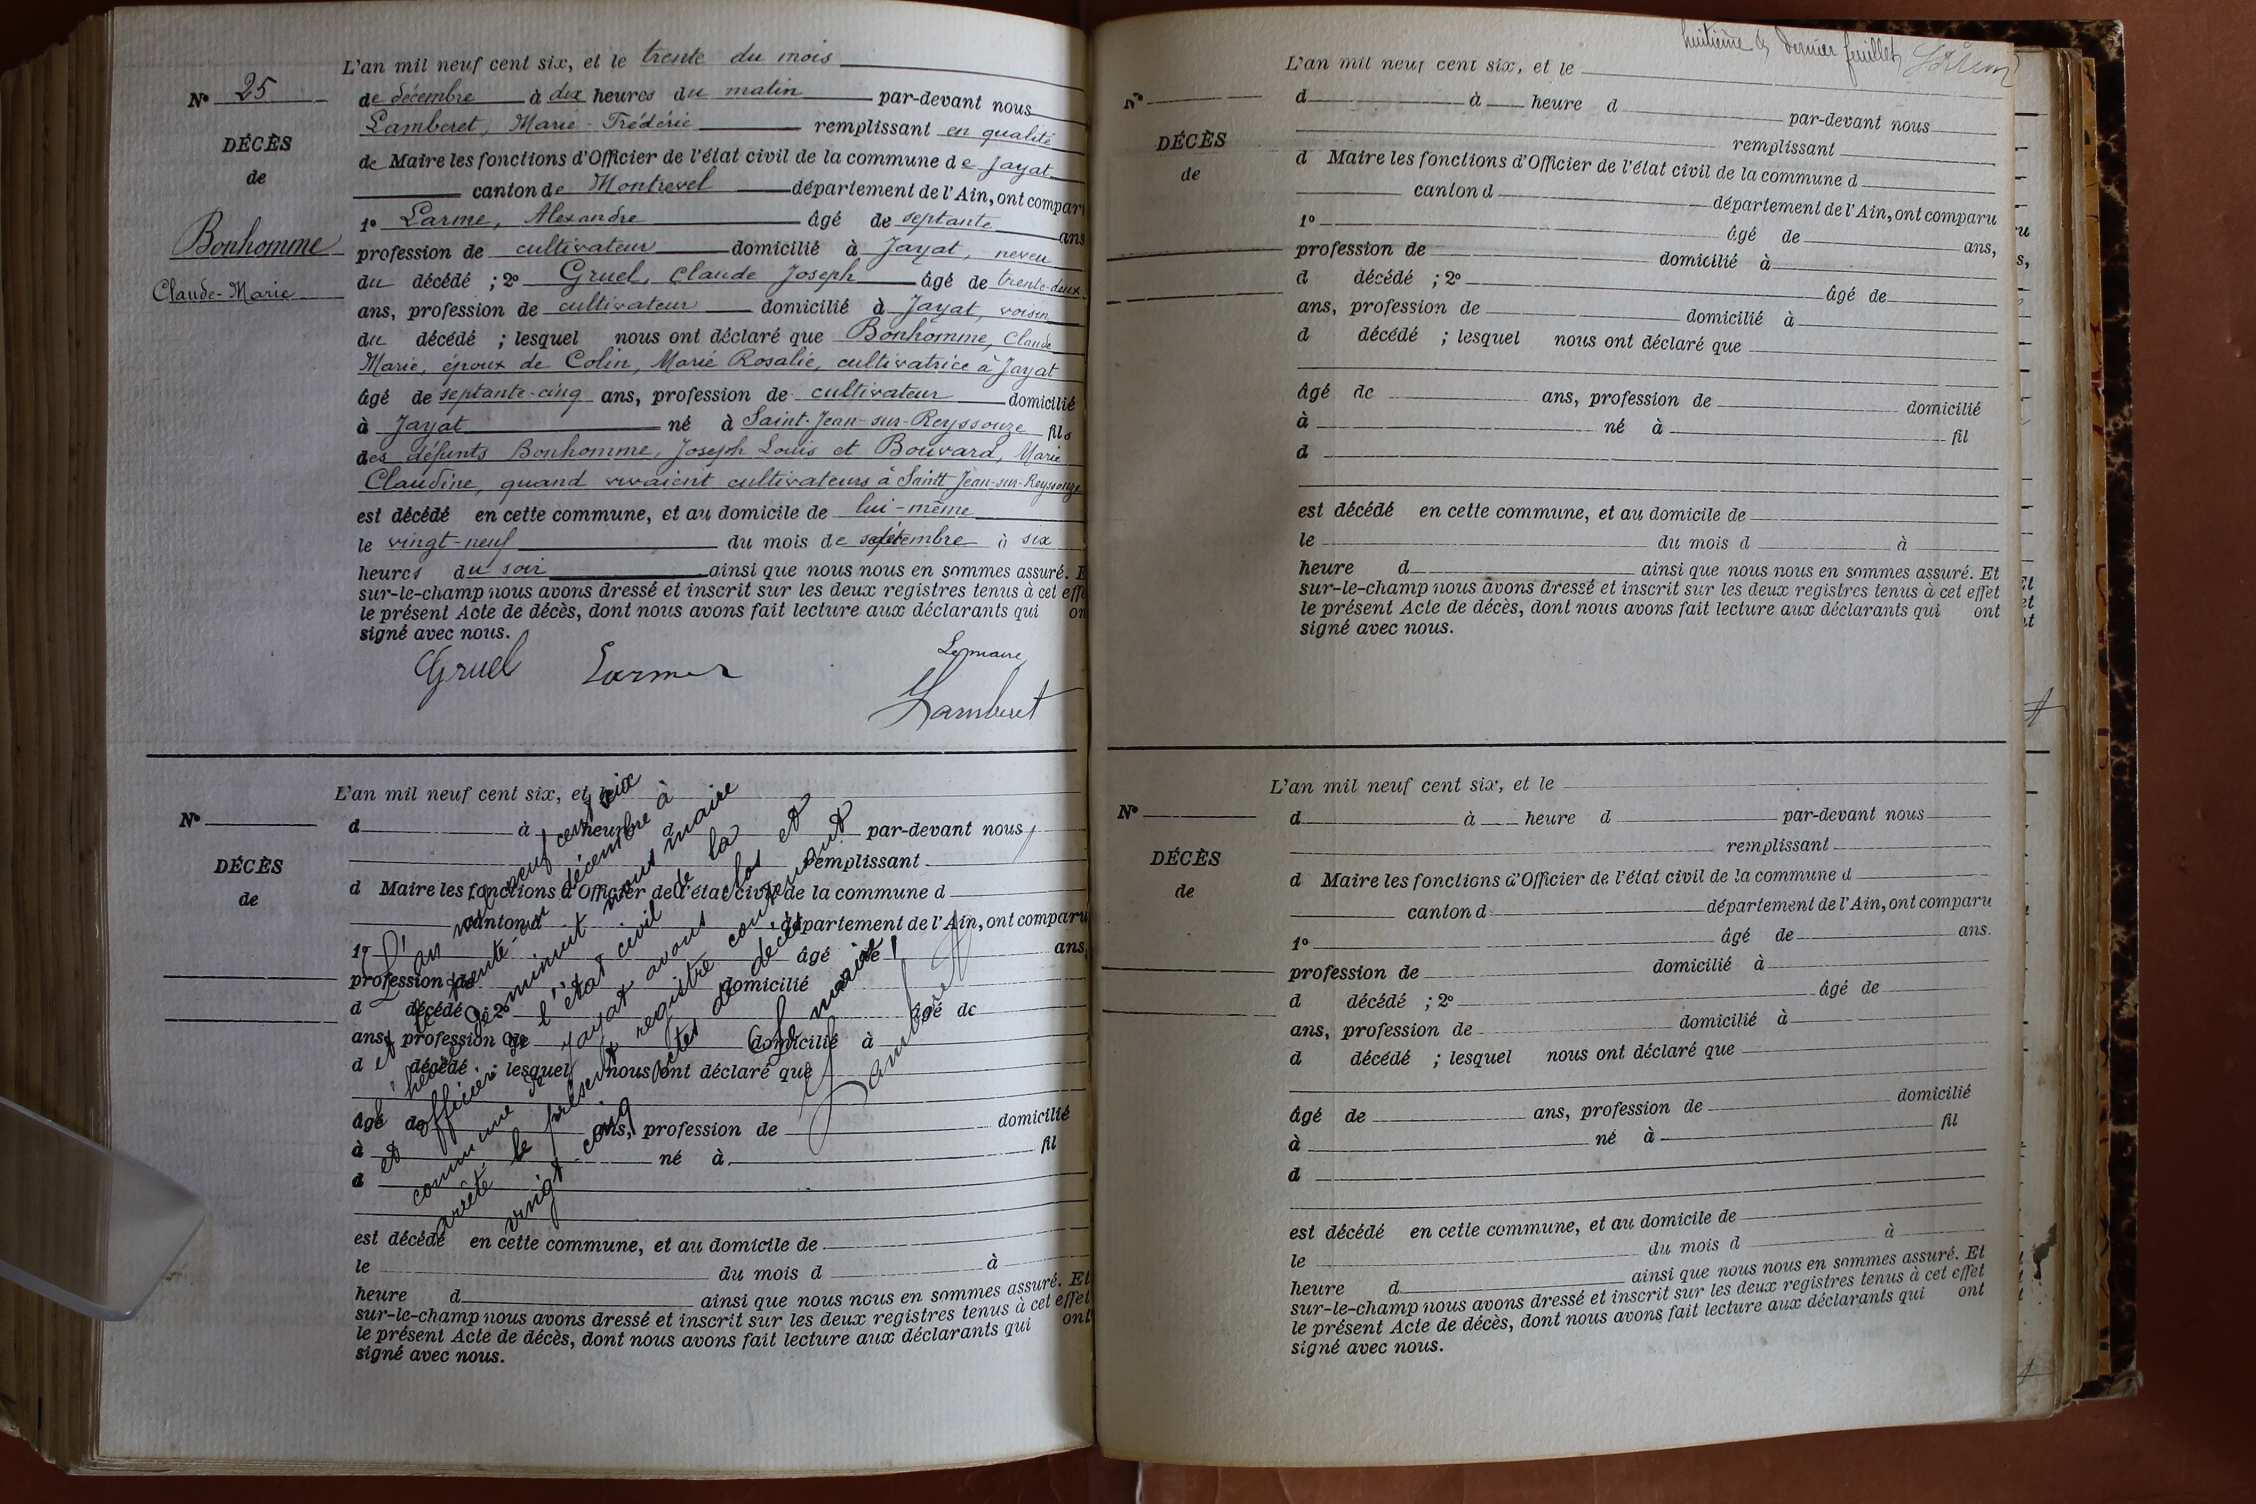 L'an mil neuf cent six, et le trente du mois
N° 25
de décembre à dix heures du matin par-devant nous
Lamberet, Marie-Frédéric remplissant en qualité
DÉCÈS
de Maire les fonctions d'Officier de l'état civil de la commune de Jayat
de
canton de Montrevel département de l'Ain, ont compar
1° Larme, Alexandre âgé de septante ans
Bonhomme
profession de cultivateur domicilié à Jayat, neveu
du décédé ; 2° Gruel, Claude Joseph âgé de trente-deux
Claude-Marie
ans, profession de cultivateur domicilié à Jayat, voisin
du décédé ; lesquel nous ont déclaré que Bonhomme, Claude
Marie, époux de Colin, Marie Rosalie, cultivatrice à Jayat
âgé de septante-cinq ans, profession de cultivateur domicilié
à Jayat né à Saint-Jean-sur-Reyssouze fils
des défunts Bonhomme, Joseph Louis et Bouvard, Marie
Claudine, quand vivaient cultivateurs à Saint Jean-sur-Reyssouze
est décédé en cette commune, et au domicile de lui-même
le vingt-neuf du mois de à six
heures du soir ainsi que nous nous en sommes assuré. E
sur-le-champ nous avons dressé et inscrit sur les deux registres tenus à cet effe
le présent Acte de décès, dont nous avons fait lecture aux déclarants qui on
signé avec nous.
Gruel Larme
Le maire
Lamberet
L'an mil neuf cent six, et le
N°
d à heure d par-devant nous
remplissant
DÉCÈS
d Maire les fonctions d'Officier de l'état civil de la commune d
de
canton d département de l'Ain, ont comparu
1° âgé de ans,
profession de domicilié
d décédé ; 2° âgé de
ans, profession de domicilié à
d décédé ; lesquel nous ont déclaré que
âgé de ans, profession de domicilié
à né à fil
d
est décédé en cette commune, et au domicile de
le du mois d à
heure d ainsi que nous nous en sommes assuré. Et
sur-le-champ nous avons dressé et inscrit sur les deux registres tenus à cet effet
le présent Acte de décès, dont nous avons fait lecture aux déclarants qui ont
signé avec nous.
L'an mil neuf cent six
et le trente-un décembre à
l'heure de minuit nous maire
et officier de l'état civil de la
commune de Jayat avons clos et
arrêté le présent registre contenant
vingt cinq actes de décès
Le maire
Lamberet
huitième & dernier feuillet
L'an mil neuf cent six, et le
N°
d à heure d par-devant nous
remplissant
DÉCÈS
d Maire les fonctions d'Officier de l'état civil de la commune d
de
canton d département de l'Ain, ont comparu
1° âgé de ans,
profession de domicilié à
d décédé ; 2° âgé de
ans, profession de domicilié à
d décédé ; lesquel nous ont déclaré que
âgé de ans, profession de domicilié
à né à fil
d
est décédé en cette commune, et au domicile de
le du mois d à
heure d ainsi que nous nous en sommes assuré. Et
sur-le-champ nous avons dressé et inscrit sur les deux registres tenus à cet effet
le présent Acte de décès, dont nous avons fait lecture aux déclarants qui ont
signé avec nous.
L'an mil neuf cent six, et le
N°
d à heure d par-devant nous
remplissant
DÉCÈS
d Maire les fonctions d'Officier de l'état civil de la commune d
de
canton d département de l'Ain, ont comparu
1° âgé de ans.
profession de domicilié à
d décédé ; 2° âgé de
ans, profession de domicilié à
d décédé ; lesquel nous ont déclaré que
âgé de ans, profession de domicilié
à né à fil
d
est décédé en cette commune, et au domicile de
le du mois d à
heure d ainsi que nous nous en sommes assuré. Et
sur-le-champ nous avons dressé et inscrit sur les deux registres tenus à cet effet
le présent Acte de décès, dont nous avons fait lecture aux déclarants qui ont
signé avec nous.